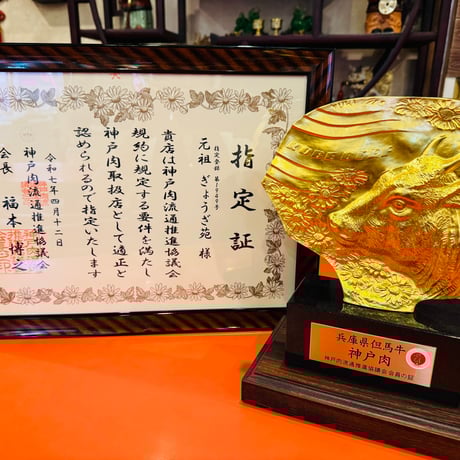 指定証
指定登録 第1949号
元祖 ぎょうざ苑 様
貴店は神戸肉流通推進協議会
規約に規定する要件を満たし
神戸肉取扱店として適正と
認められるので指定いたします
令和七年四月十二日
神戸肉流通推進協議会
会長 福本 博之
兵庫県但馬牛
神戸肉
神戸肉流通推進協議会会員の証